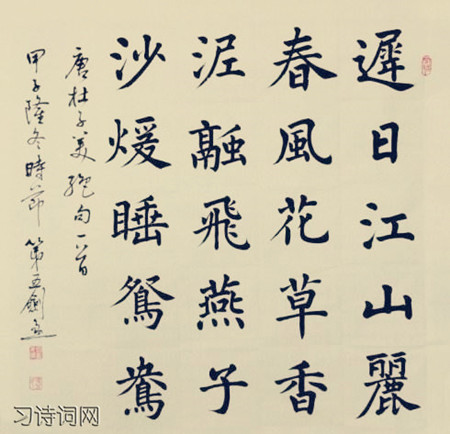 遲日江山麗
春風花草香
泥融飛燕子
沙煖睡鴛鴦
唐杜子美絕句一首
甲子隆冬時節 第五劍
习诗词网